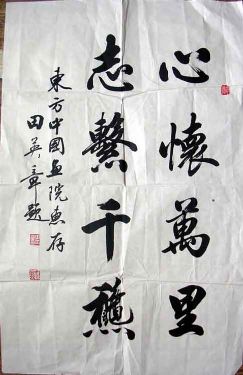 心懷萬里
志繫千穐
東方中國画院惠存
田英章題